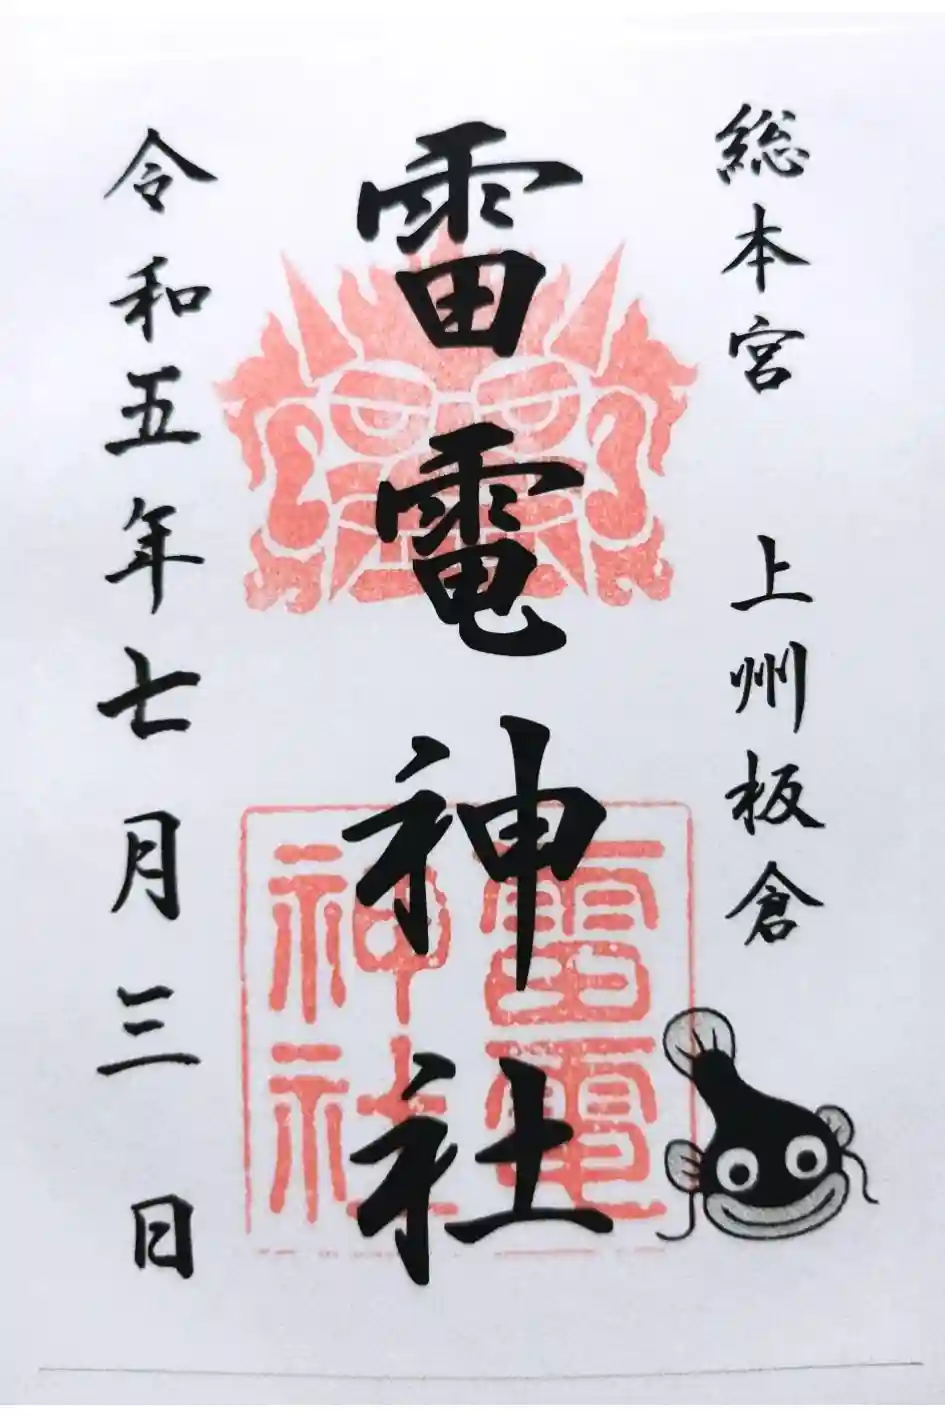 総本宮 上州板倉
雷電神社
雷電
神社
令和五年七月三日